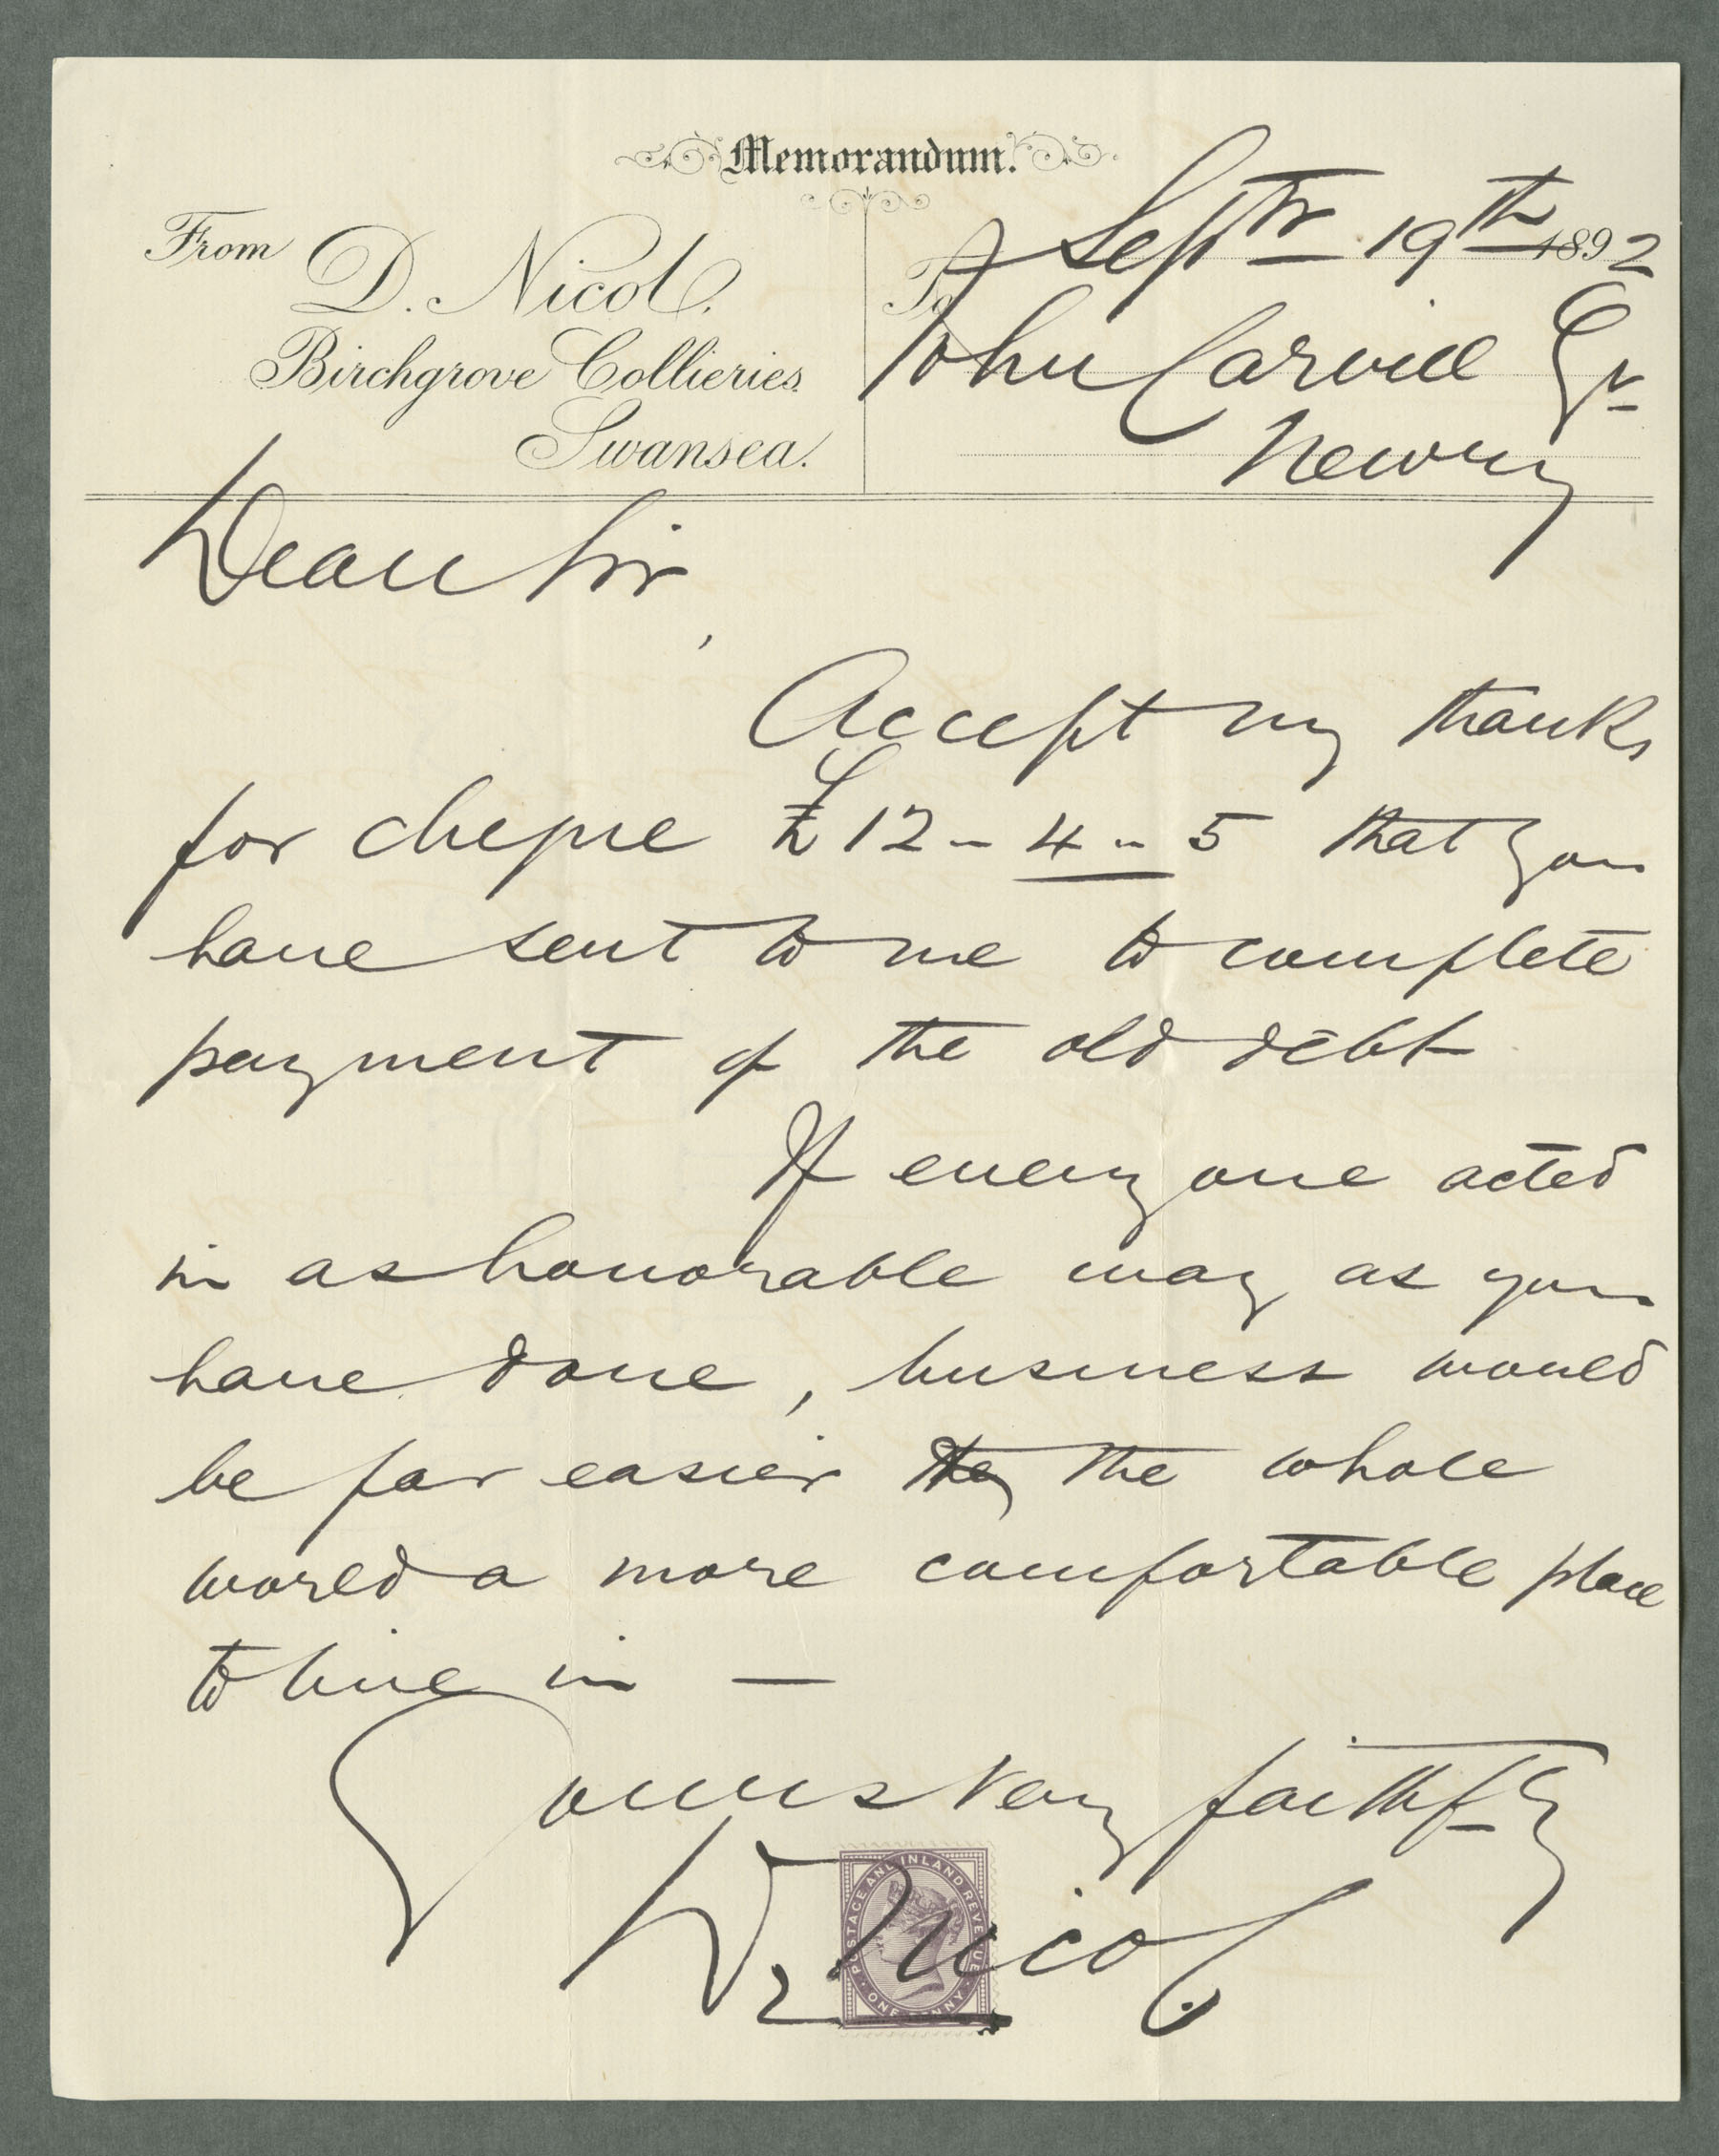 Memorandum.
From
D. Nicol.
Birchgrove Collieries.
Swansea.
Septr 19th 1892
To
John Carvill Esqr
Newry
Dear Sir,
Accept my thanks
for cheque £12-4-5 that you
have sent to me to complete
payment of the old debt
If every one acted
in as honorable way as you
have done, business would
be far easier & the whole
world a more comfortable place
to live in —
Yours very faithfly
D. Nicol
POSTAGE AND INLAND REVENUE
ONE PENNY